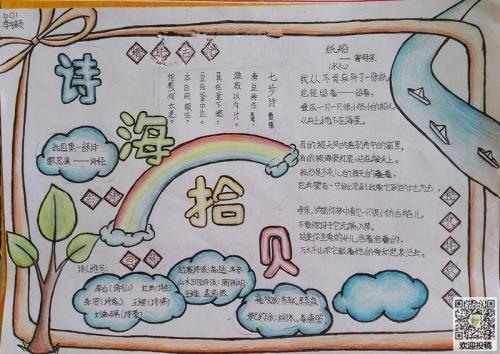 诗海拾贝
七步诗 曹植
煮豆持作羹,
漉豉以为汁。
萁在釜下燃,
豆在釜中泣。
本自同根生,
相煎何太急。
纸船
冰心
——寄母亲
我从不肯妄弃了一张纸,
总是留着——留着,
叠成一只一只很小的船儿,
从舟上抛下在海里。
有的被天风吹卷到舟中的窗里,
有的被海浪打湿,沾在船头上。
我仍是不灰心的每天的叠着,
总希望有一只能流到我要它到的地方去。
母亲,倘若你梦中看见一只很小的白船儿,
不要惊讶它无端入梦。
这是你至爱的女儿含着泪叠的,
万水千山求它载着她的爱和悲哀归去。
我国第一部诗
歌总集——诗经
诗人雅号:
李白(诗仙) 杜甫(诗圣)
李贺(诗鬼) 王维(诗佛)
刘禹锡(诗豪)
边塞诗派:高适、岑参
山水田园诗派:陶渊明
王维 孟浩然
豪放派:苏轼、辛弃疾
婉约派:柳永、李清照
欢迎投稿